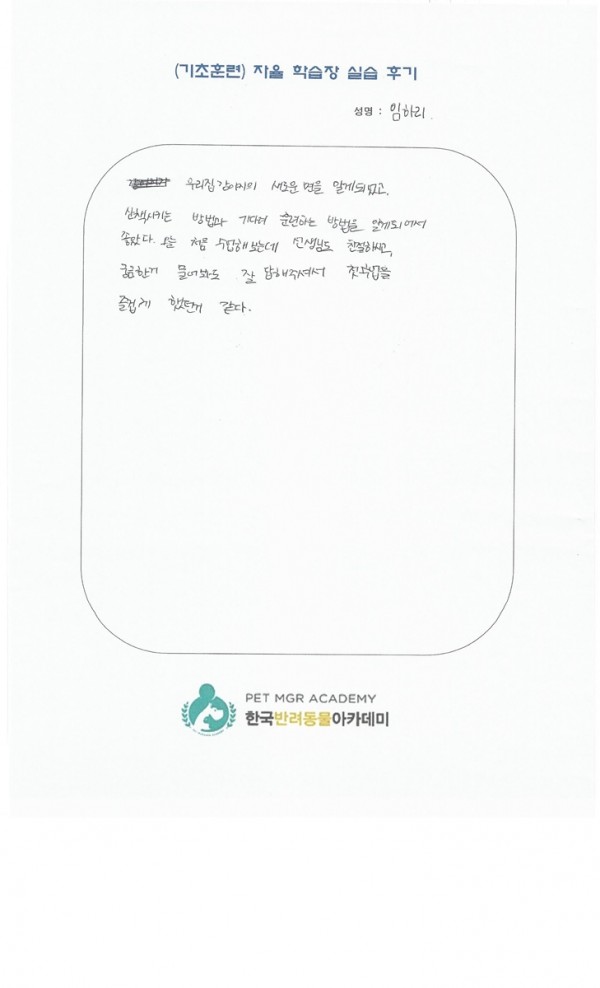 (기초훈련) 자율 학습장 실습 후기
성명 : 임하리
우리집 강아지의 새로운 면을 알게되었고,
산책시키는 방법과 기다려 훈련하는 방법을 알게되어서
좋았다. 오늘 처음 수업해보는데 선생님도 친절하시고,
궁금한거 물어봐도 잘 답해주셔서 첫수업을
즐겁게 했던거 같다.
PET MGR ACADEMY
한국반려동물아카데미